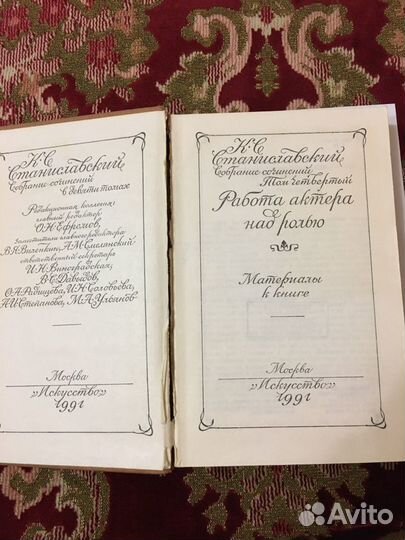 К·С·
Станиславский
Собрание сочинений
в девяти томах
Редакционная коллегия:
главный редактор
О.Н.Ефремов,
заместители главного редактора
В.Я.Виленкин, А.М.Смелянский,
ответственный секретарь
И.Н.Виноградская,
В.С.Давыдов,
О.А.Радищева, И.Н.Соловьева,
А.И.Степанова, М.А.Ульянов
Москва
«Искусство»
1991
К·С·
Станиславский
Собрание сочинений
Том четвертый
Работа актера
над ролью
Материалы
к книге
Москва
«Искусство»
1991
Avito